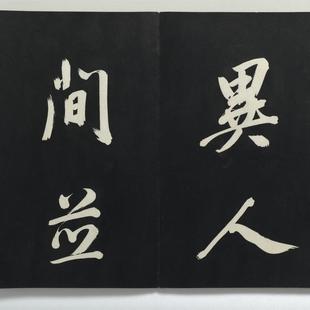 異人
間並